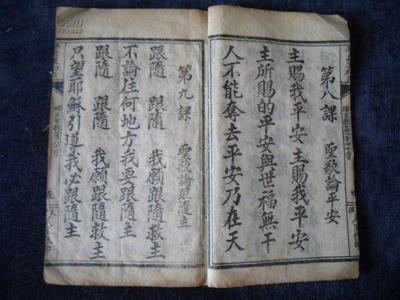 第八課　聖歌論平安
主賜我平安主賜我平安
主所賜的平安與世福無干
人不能奪去平安乃在天
第九課　聖歌論跟隨主
跟隨　跟隨　我願跟隨救主
不論往何地方我要跟隨救主
跟隨　跟隨　我願跟隨救主
只望耶穌引道我必跟隨主